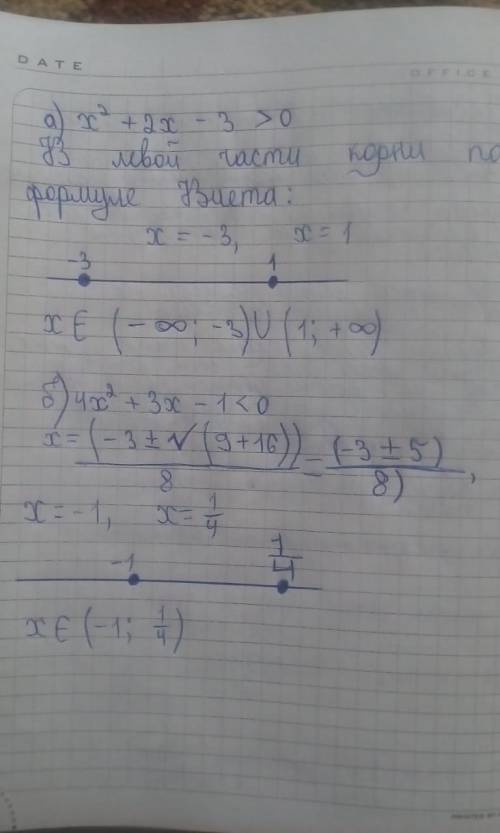 DATE
OFFICE
а) x² + 2x - 3 > 0
В левой части корни по
формуле Виета:
x = -3, x = 1
-3 1
x ∈ (-∞; -3) ∪ (1; +∞)
б) 4x² + 3x - 1 < 0
x = (-3 ± √(9+16))/8 = (-3 ± 5)/8),
x = -1, x = 1/4
-1 1/4
x ∈ (-1; 1/4)